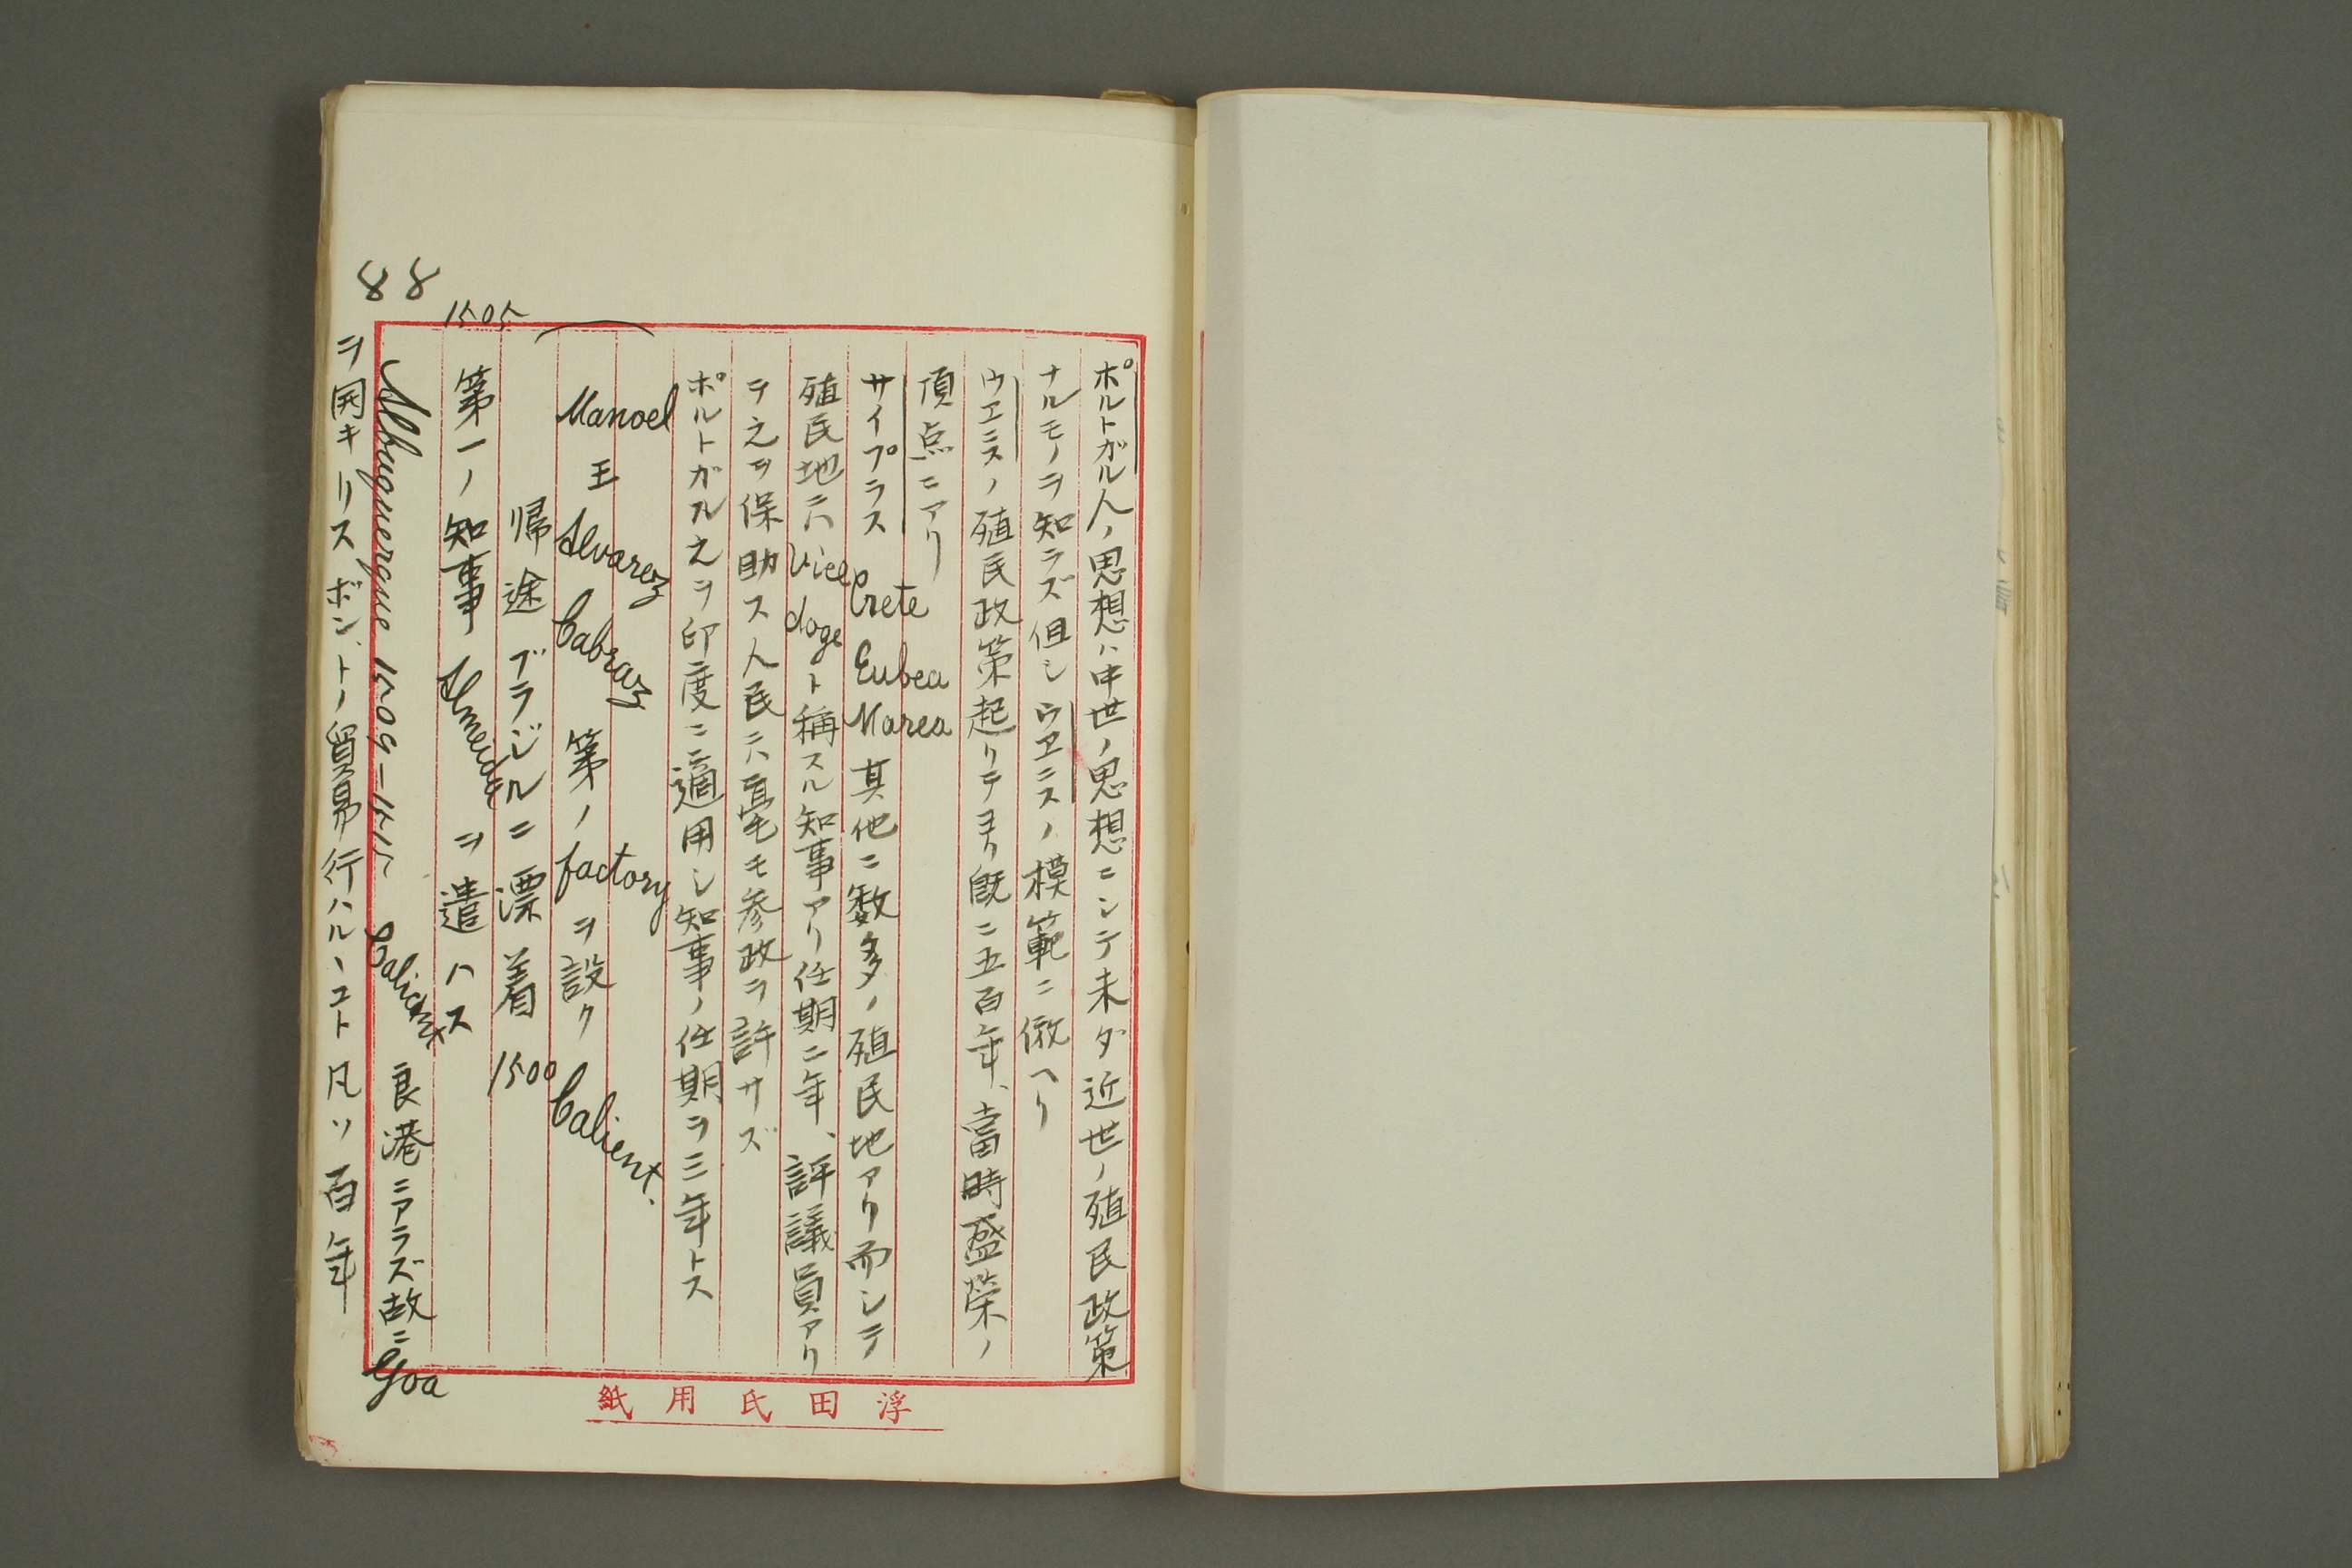 ポルトガル人ノ思想ハ中世ノ思想ニシテ未ダ近世ノ殖民政策
ナルモノヲ知ラズ但シウエニスノ模範ニ傚ヘリ
ウエニスノ殖民政策起リテヨリ既ニ五百年、當時盛榮ノ
頂点ニアリ
サイプラス Crete Eubea Marea 其他ニ数多ノ殖民地アリ而シテ
殖民地ニハ Vice doge ト稱スル知事アリ任期二年、評議員アリ
テ之ヲ保助ス人民ニハ毫モ参政ヲ許サズ
ポルトガル之ヲ印度ニ適用シ知事ノ任期ヲ三年トス
Manoel 王 Alvarez Cabraz 第一ノ factory ヲ設ク Calient.
帰途ブラジルニ漂着 1500
1505
第一ノ知事 Almeida ヲ遣ハス
Albuquerque 1509-1515 Calient 良港ニアラズ故ニ Goa
ヲ開キリスボント貿易行ハルヽコト凡ソ百年
88
浮田氏用紙